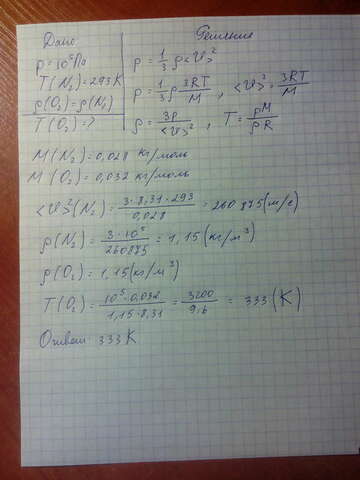 Дано
p = 10⁵ Па
T(N₂) = 293 К
ρ(O₂) = ρ(N₂)
T(O₂) = ?
Решение
p = 1/3 ρ <v>²
p = 1/3 ρ 3RT/M , <v>² = 3RT/M
ρ = 3p/<v>² , T = pM/ρR
M(N₂) = 0,028 кг/моль
M(O₂) = 0,032 кг/моль
<v>²(N₂) = 3·8,31·293/0,028 = 260 875 (м/с)
ρ(N₂) = 3·10⁵/260875 = 1,15 (кг/м³)
ρ(O₂) = 1,15 (кг/м³)
T(O₂) = 10⁵·0,032/1,15·8,31 = 3200/9,6 = 333 (К)
Ответ: 333 К